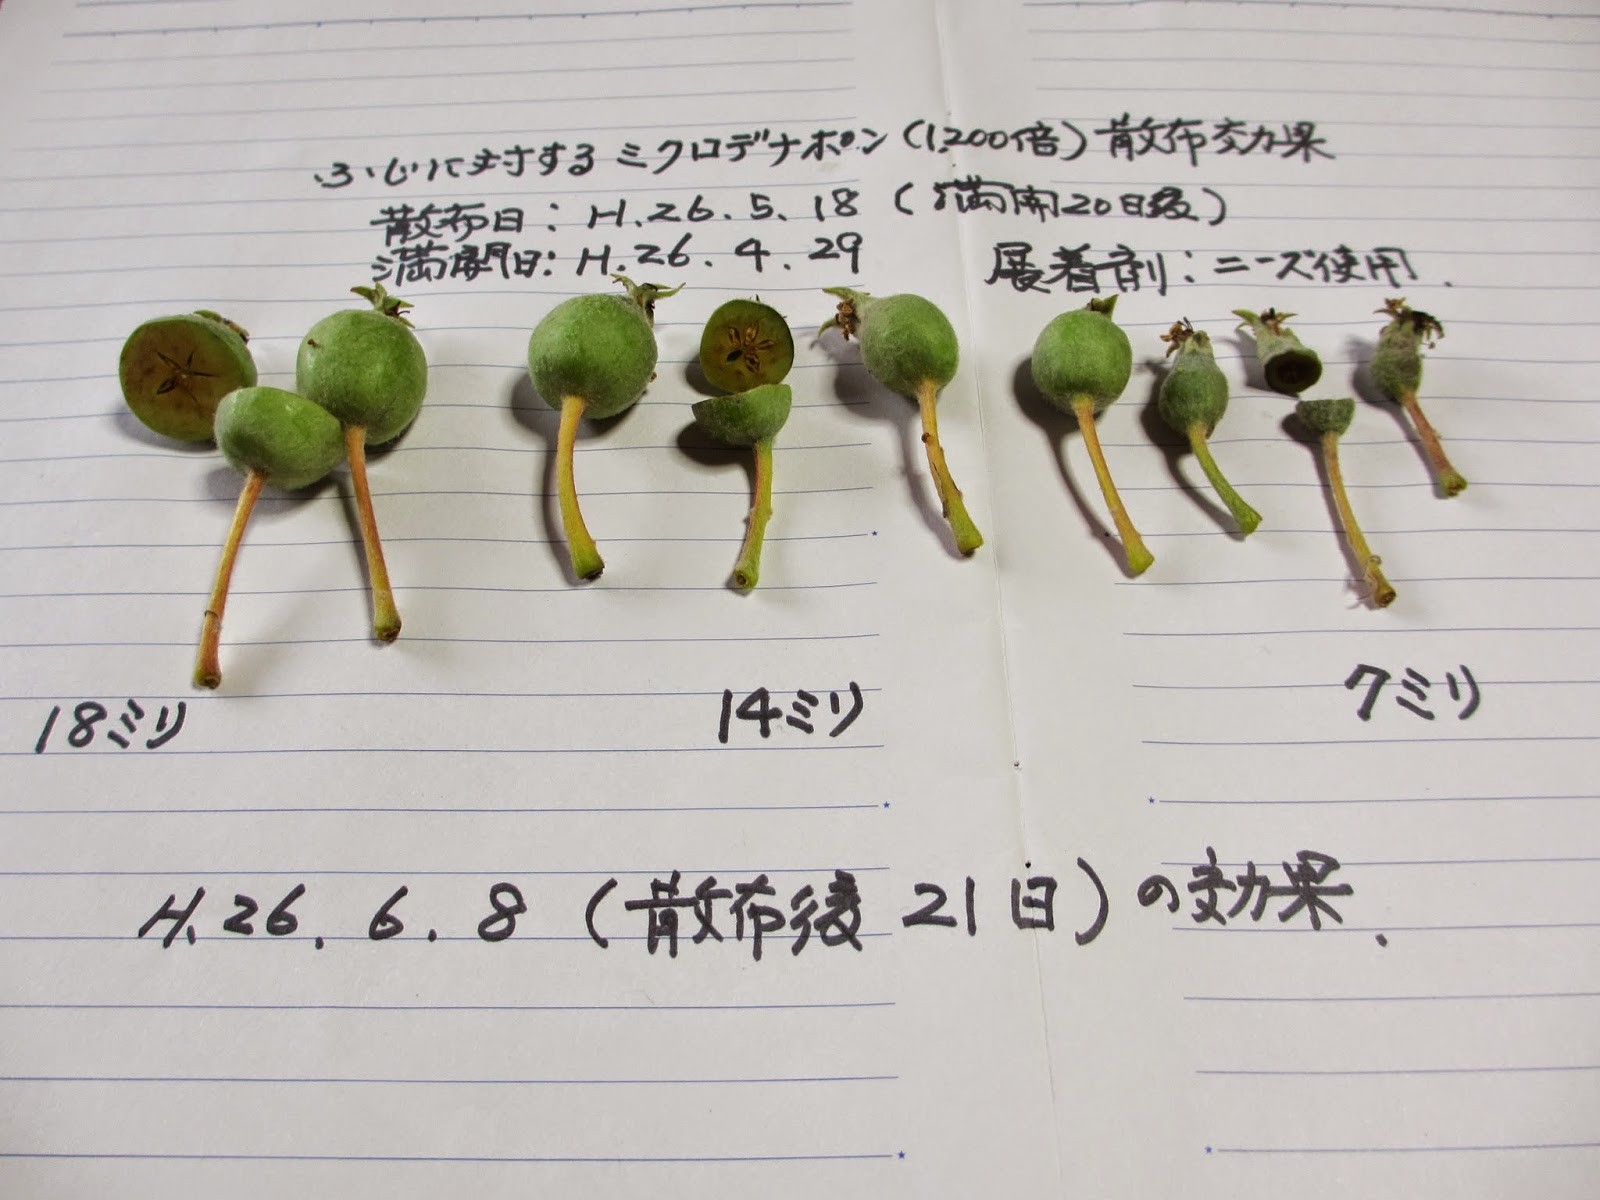 ふじに対するミクロデナポン(1,200倍)散布効果
散布日:H.26.5.18(満開20日後)
満開日:H.26.4.29 展着剤:ニーズ使用.
18ミリ 14ミリ 7ミリ
H.26.6.8(散布後21日)の効果.